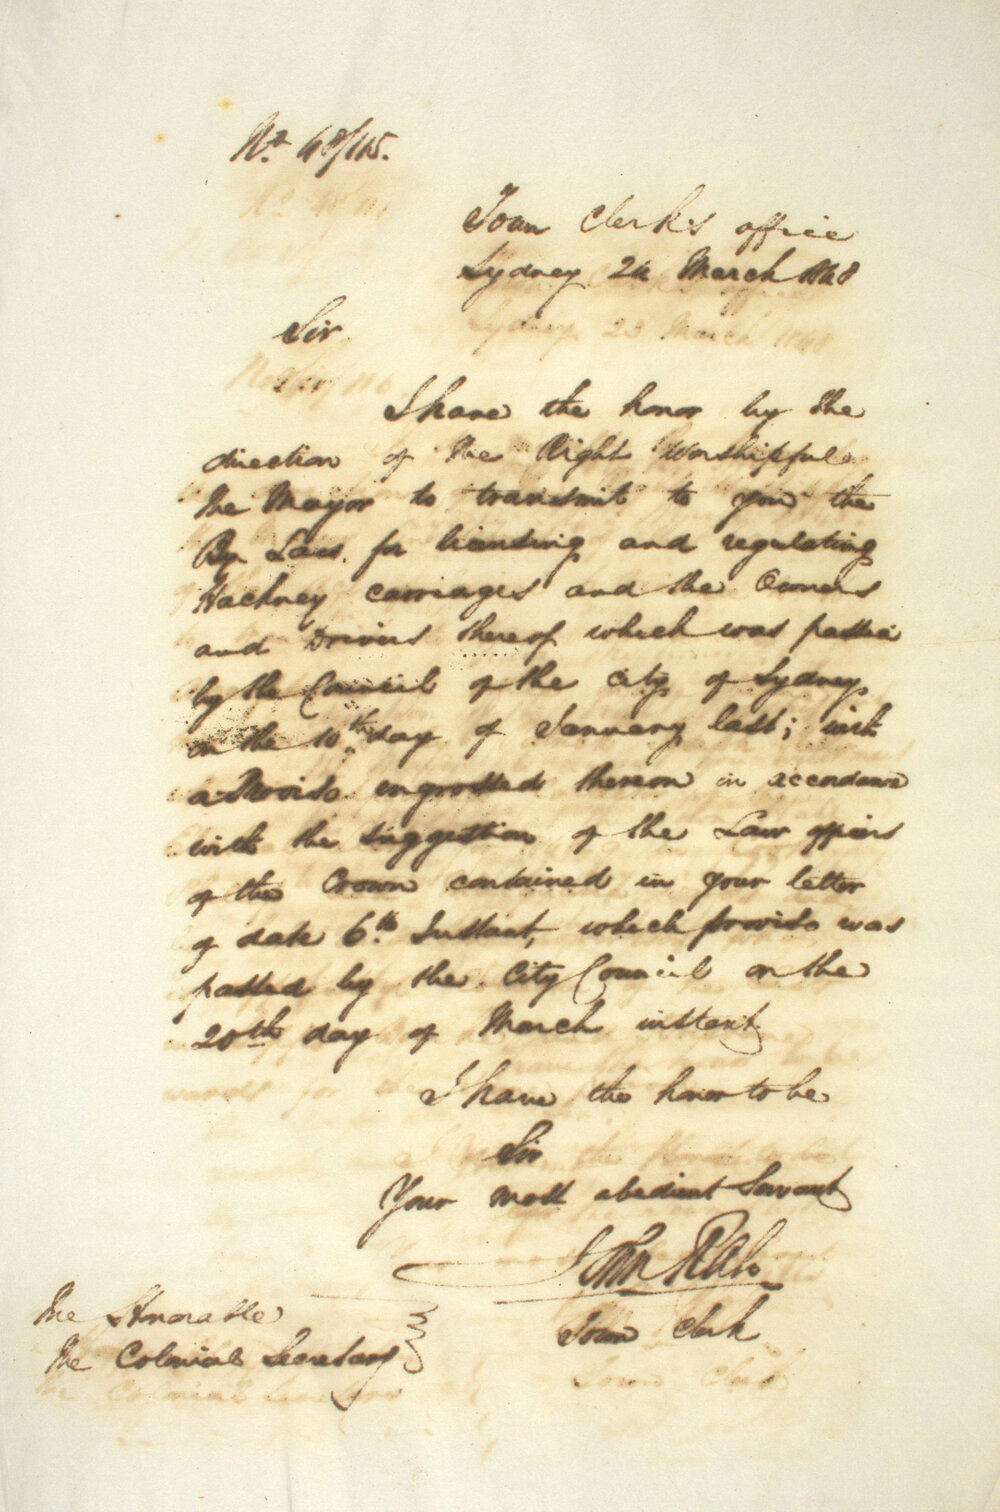 No. 48/115.
Town Clerk's office
Sydney 24 March 1848
Sir
I have the honor by the
direction of the Right Worshipful
the Mayor to transmit to you the
By Laws for licensing and regulating
Hackney carriages and the Owners
and Drivers thereof which was passed
by the Council of the City of Sydney
on the 10th day of January last; with
a Proviso engrossed thereon in accordance
with the suggestion of the Law officers
of the Crown contained in your letter
of date 6th Instant, which proviso was
passed by the City Council on the
20th day of March instant
I have the honor to be
Sir
Your most obedient Servant
John Rae
Town Clerk
The Honorable
The Colonial Secretary